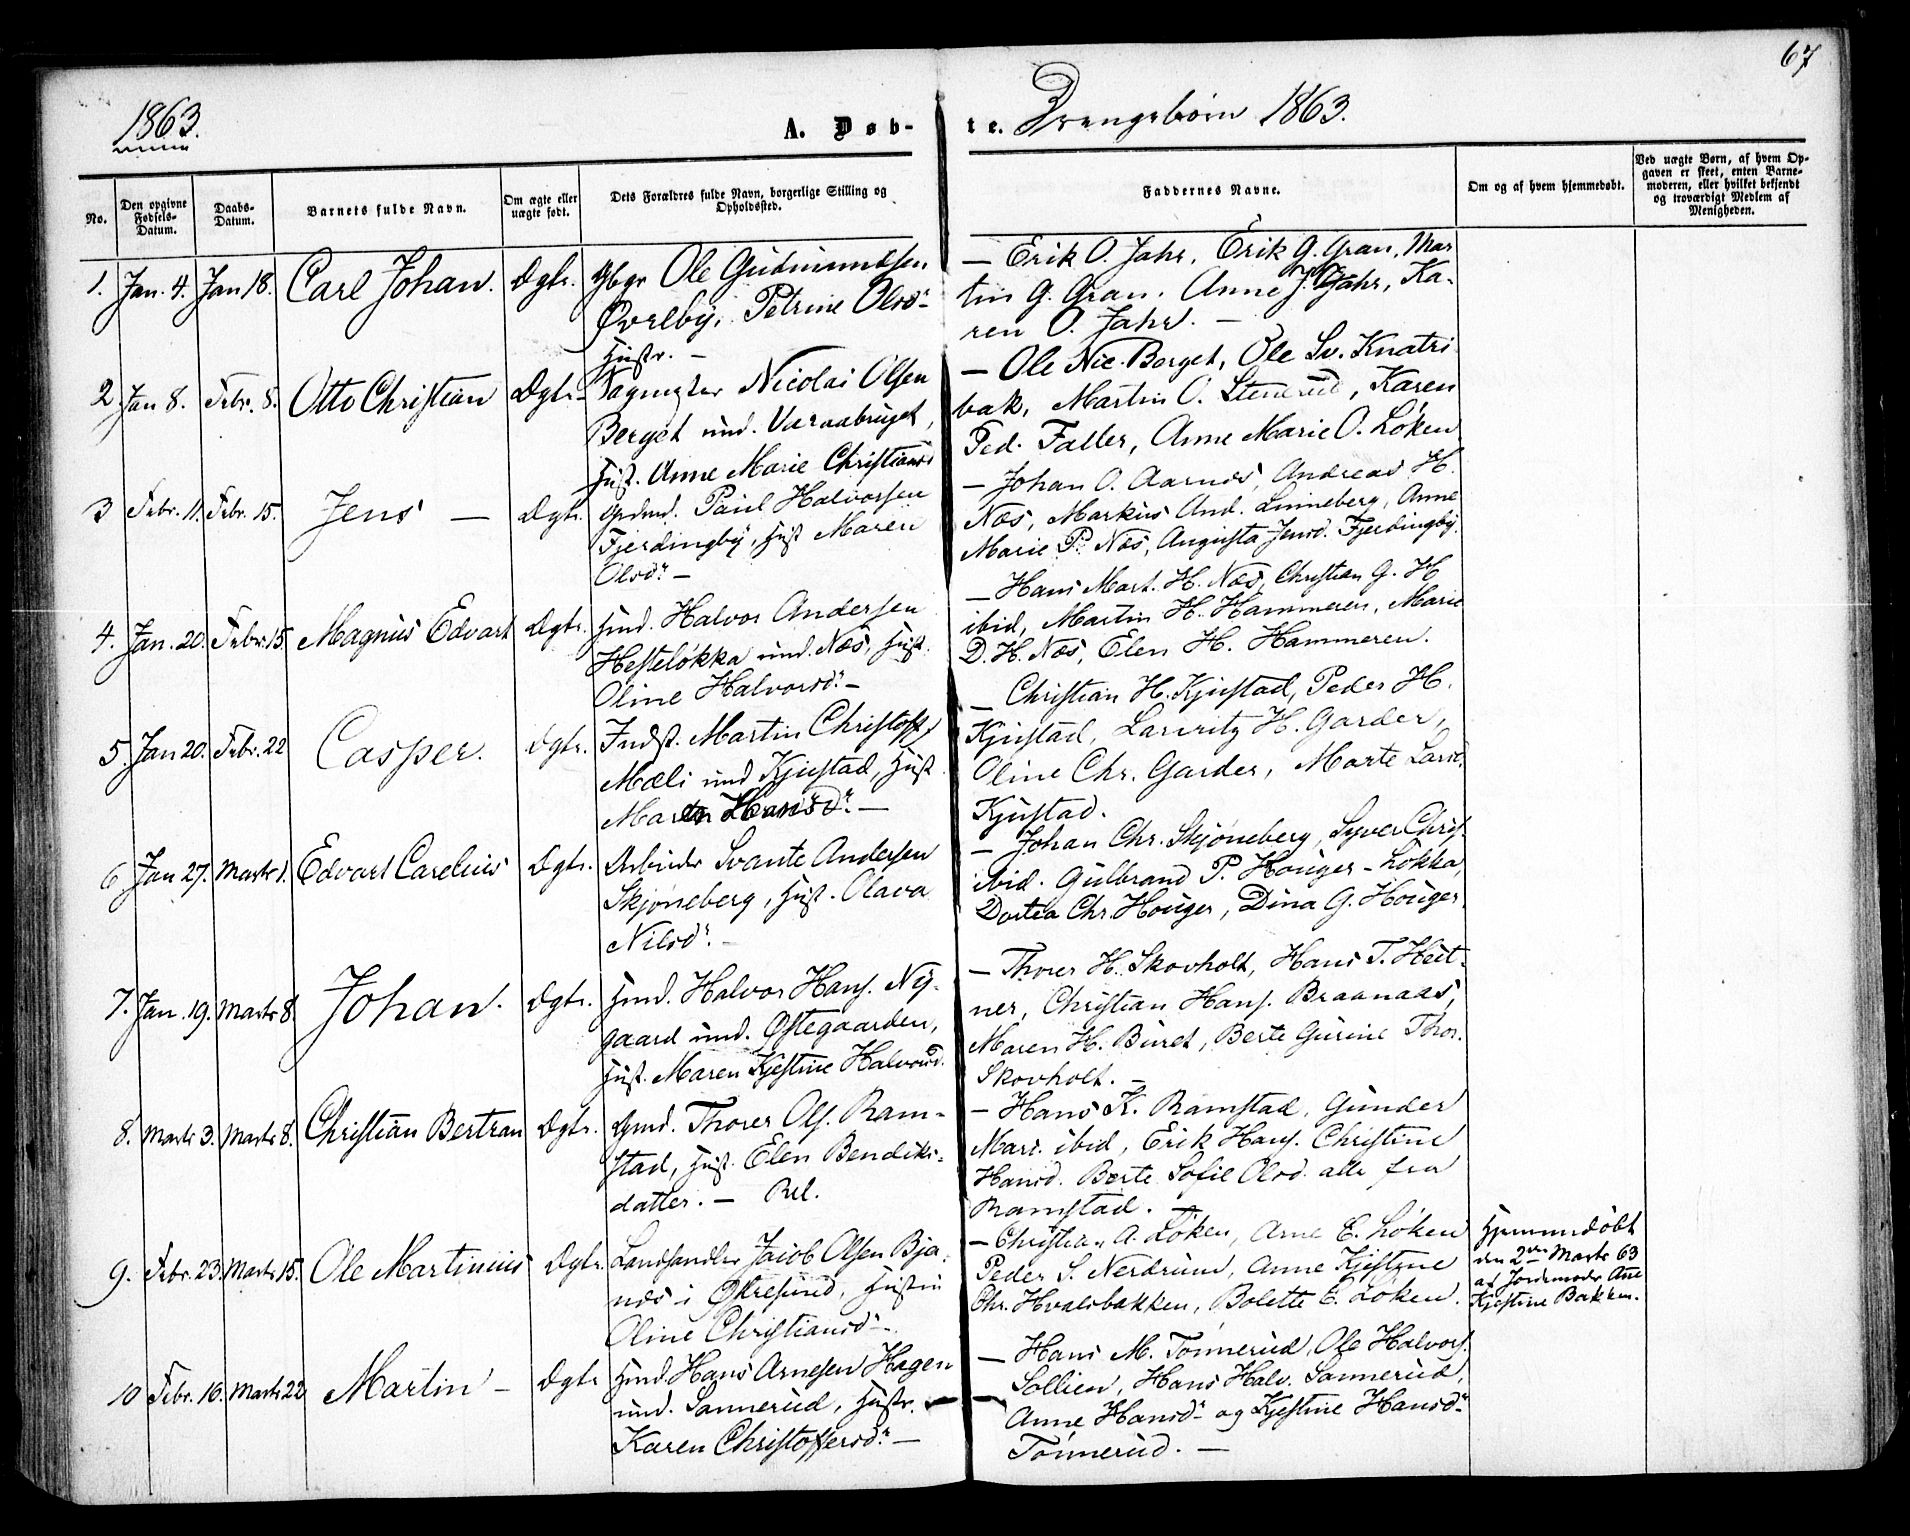 67
1863.
A. Døb-
te. Drengebørn 1863.
No.
Den opgivne Fødsels-Datum.
Daabs-Datum.
Barnets fulde Navn.
Om ægte eller uægte født.
Dets Forældres fulde Navn, borgerlige Stilling og Opholdssted.
Faddernes Navne.
Om og af hvem hjemmedøbt.
Ved uægte Børn, af hvem Opgaven er skeet, enten Barnemoderen, eller hvilket bekjendt og troværdigt Medlem af Menigheden.
1. Jan. 4. Jan 18. Carl Johan. Ægte. Gbgr Ole Gudmundsen
Øvrelby, Petrine Olsdr
Hustr. –
– Erik O. Jahr, Erik G. Gran, Mar
tin G. Gran. Anne J. Jahr, Ka-
ren O. Jahr. –
2. Jan 8. Febr. 8. Otto Christian Ægte Sagmester Nicolai Olsen
Berget und. Varaabruget,
Hust. Anne Marie Christiansd
– Ole Nic. Berget, Ole Sv. Knatri
bak, Martin O. Stenerud, Karen
Ped. Faller, Anne Marie O. Løken.
3 Febr. 11. Febr. 15. Jens – Ægte. Paul Halvorsen
Fjerdingby, Hust Maren
Olsdr –
– Johan O. Aarnes, Andreas H.
Næs, Markus And. Linneberg, Anne
Marie P. Næs, Augusta Jensd. Fjerdingby.
4. Jan. 20. Febr. 15. Magnus Edvart Ægte. Hmd. Halvor Andersen
Hesteløkka und. Næs, Hust.
Oline Halvorsdr –
– Hans Mart. H. Næs, Christian G. H
ibid, Martin H. Hammeren, Marie
D. H. Næs, Elen H. Hammeren.
5. Jan 20. Febr. 22 Casper. Ægte. Indst. Martin Christoff.
Mæli und Kjustad, Hust
Maren Hansdr. –
– Christian H. Kjustad, Peder H.
Kjustad, Lavritz H. Garder,
Oline Chr. Garder, Marte Larsd.
Kjustad.
6 Jan 27. Marts 1. Edvart Carelius Ægte. Arbeider Svante Andersen
Skjøneberg, Hust. Olava
Nilsdr. –
– Johan Chr. Skjøneberg, Syver Chris.
ibid. Gulbrand P. Houger-Løkka,
Dortea Chr. Houger, Dina G. Houger.
7. Jan. 19. Marts 8 Johan. Ægte. Hmd. Halvor Hans. Ny-
gaard und. Østegaarden,
Hust. Maren Kjestine Halvorsd.
– Thorer H. Skovholt, Hans T. Heit-
ner, Christian Hans. Braanaas,
Maren H. Buret, Berte Gurine Thor.
Skovholt. –
8. Marts 3. Marts 8. Christian Bertran Ægte. Gmd. Thorer Ols. Ram-
stad, Hust. Elen Bendiks-
datter. –
– Hans K. Ramstad, Gunder
Mart. ibid, Erik Hans. Christine
Hansd. Berte Sofie Olsd. alle fra
Ramstad. –
9. Febr. 23. Marts 15. Ole Martinius Ægte. Landhandler Jacob Olsen Bja-
næs i Økresund, Hustru
Oline Christiansdr
– Christian A. Løken, Arne E. Løken
Peder S. Nerdrum, Anne Kjestine
Chr. Hvalsbakken, Bolette E. Løken.
Hjemmedøbt
den 2den Marts 63
af Jordemoder Ane
Kjestine Bakken.
10 Febr. 16. Marts 22 Martin – Ægte Hmd Hans Arnesen Hagen
und. Sannerud, Hustr.
Karen Christoffersdr. –
– Hans M. Tønnerud, Ole Halvors.
Sollien, Hans Halv. Sannerud,
Anne Hansdr og Kjestine Hansdr
Tønnerud. –